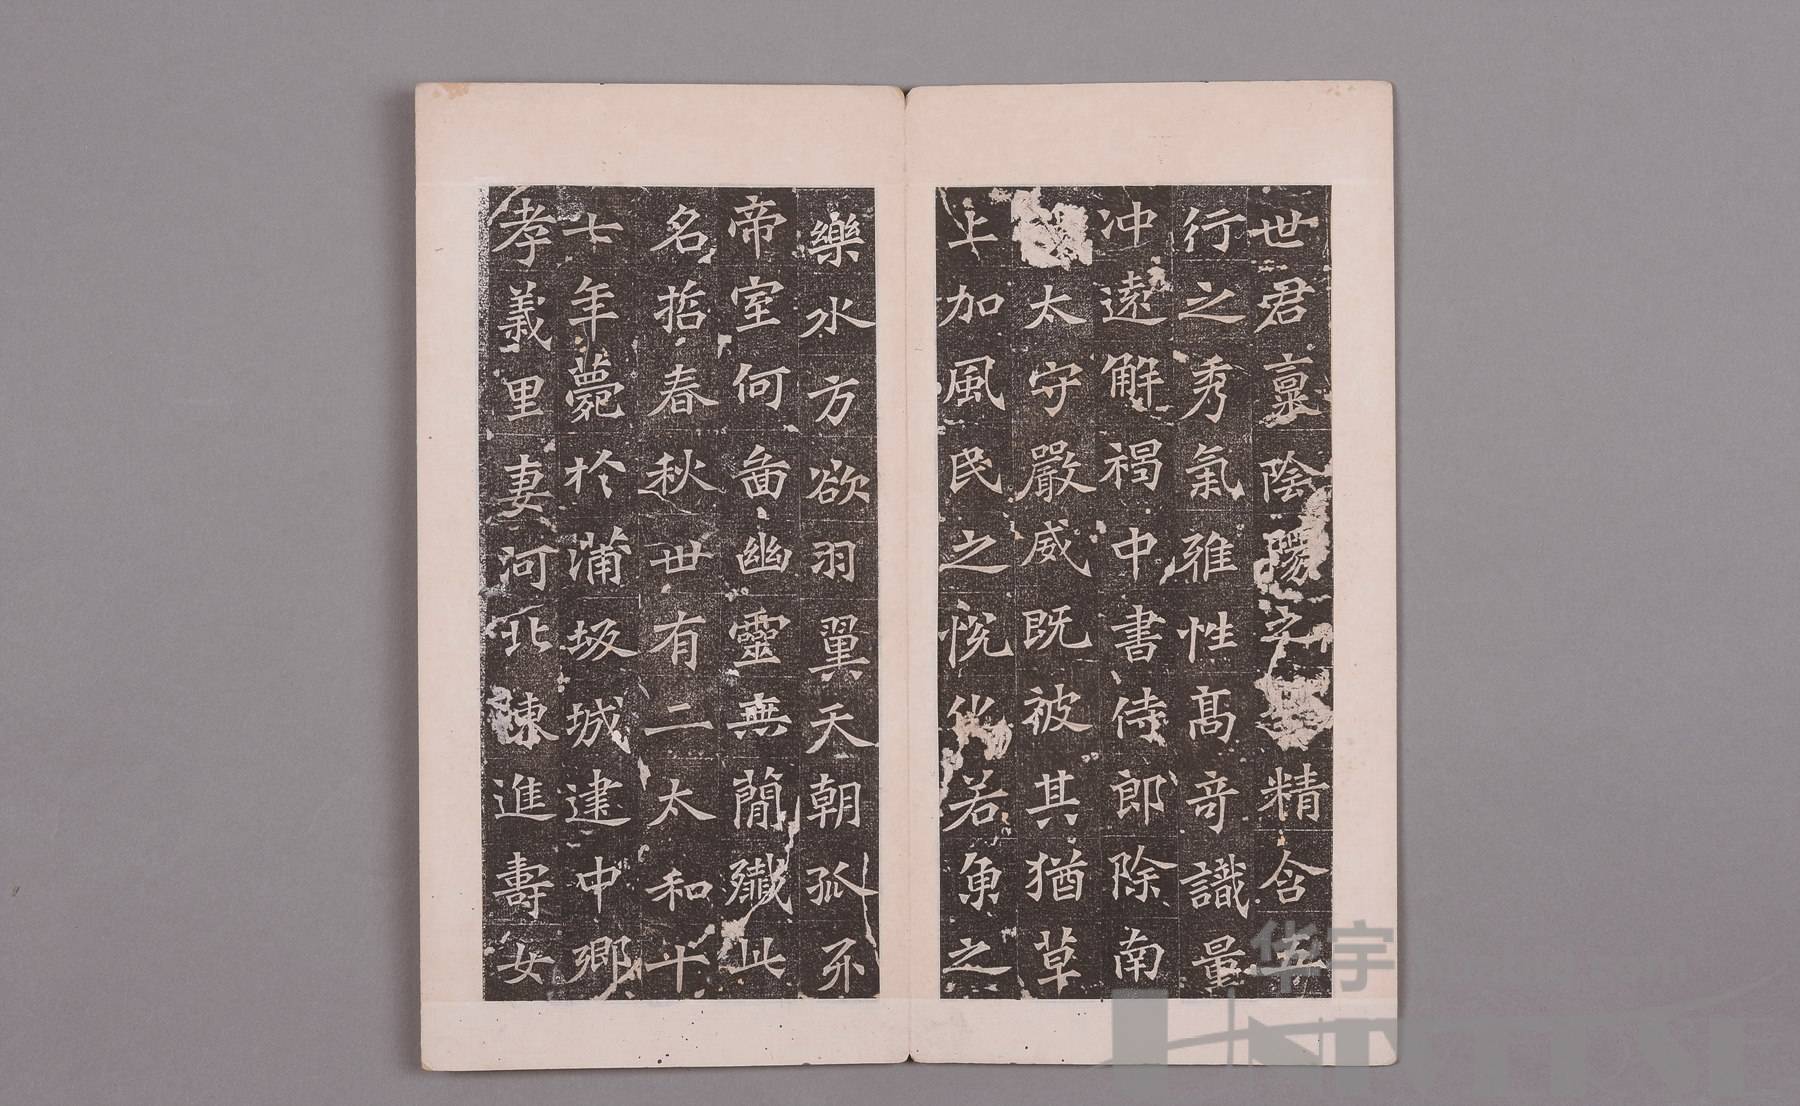 世君稟陰陽之精含五
行之秀氣雅性高奇識量
冲遠解褐中書侍郎除南
太守嚴威既被其猶草
上加風民之悅化若魚之
樂水方欲羽翼天朝抓牙
帝室何啚幽靈無簡殲此
名哲春秋卌有二太和十
七年薨於蒲坂城建中鄉
孝義里妻河北陳進壽女
华宇